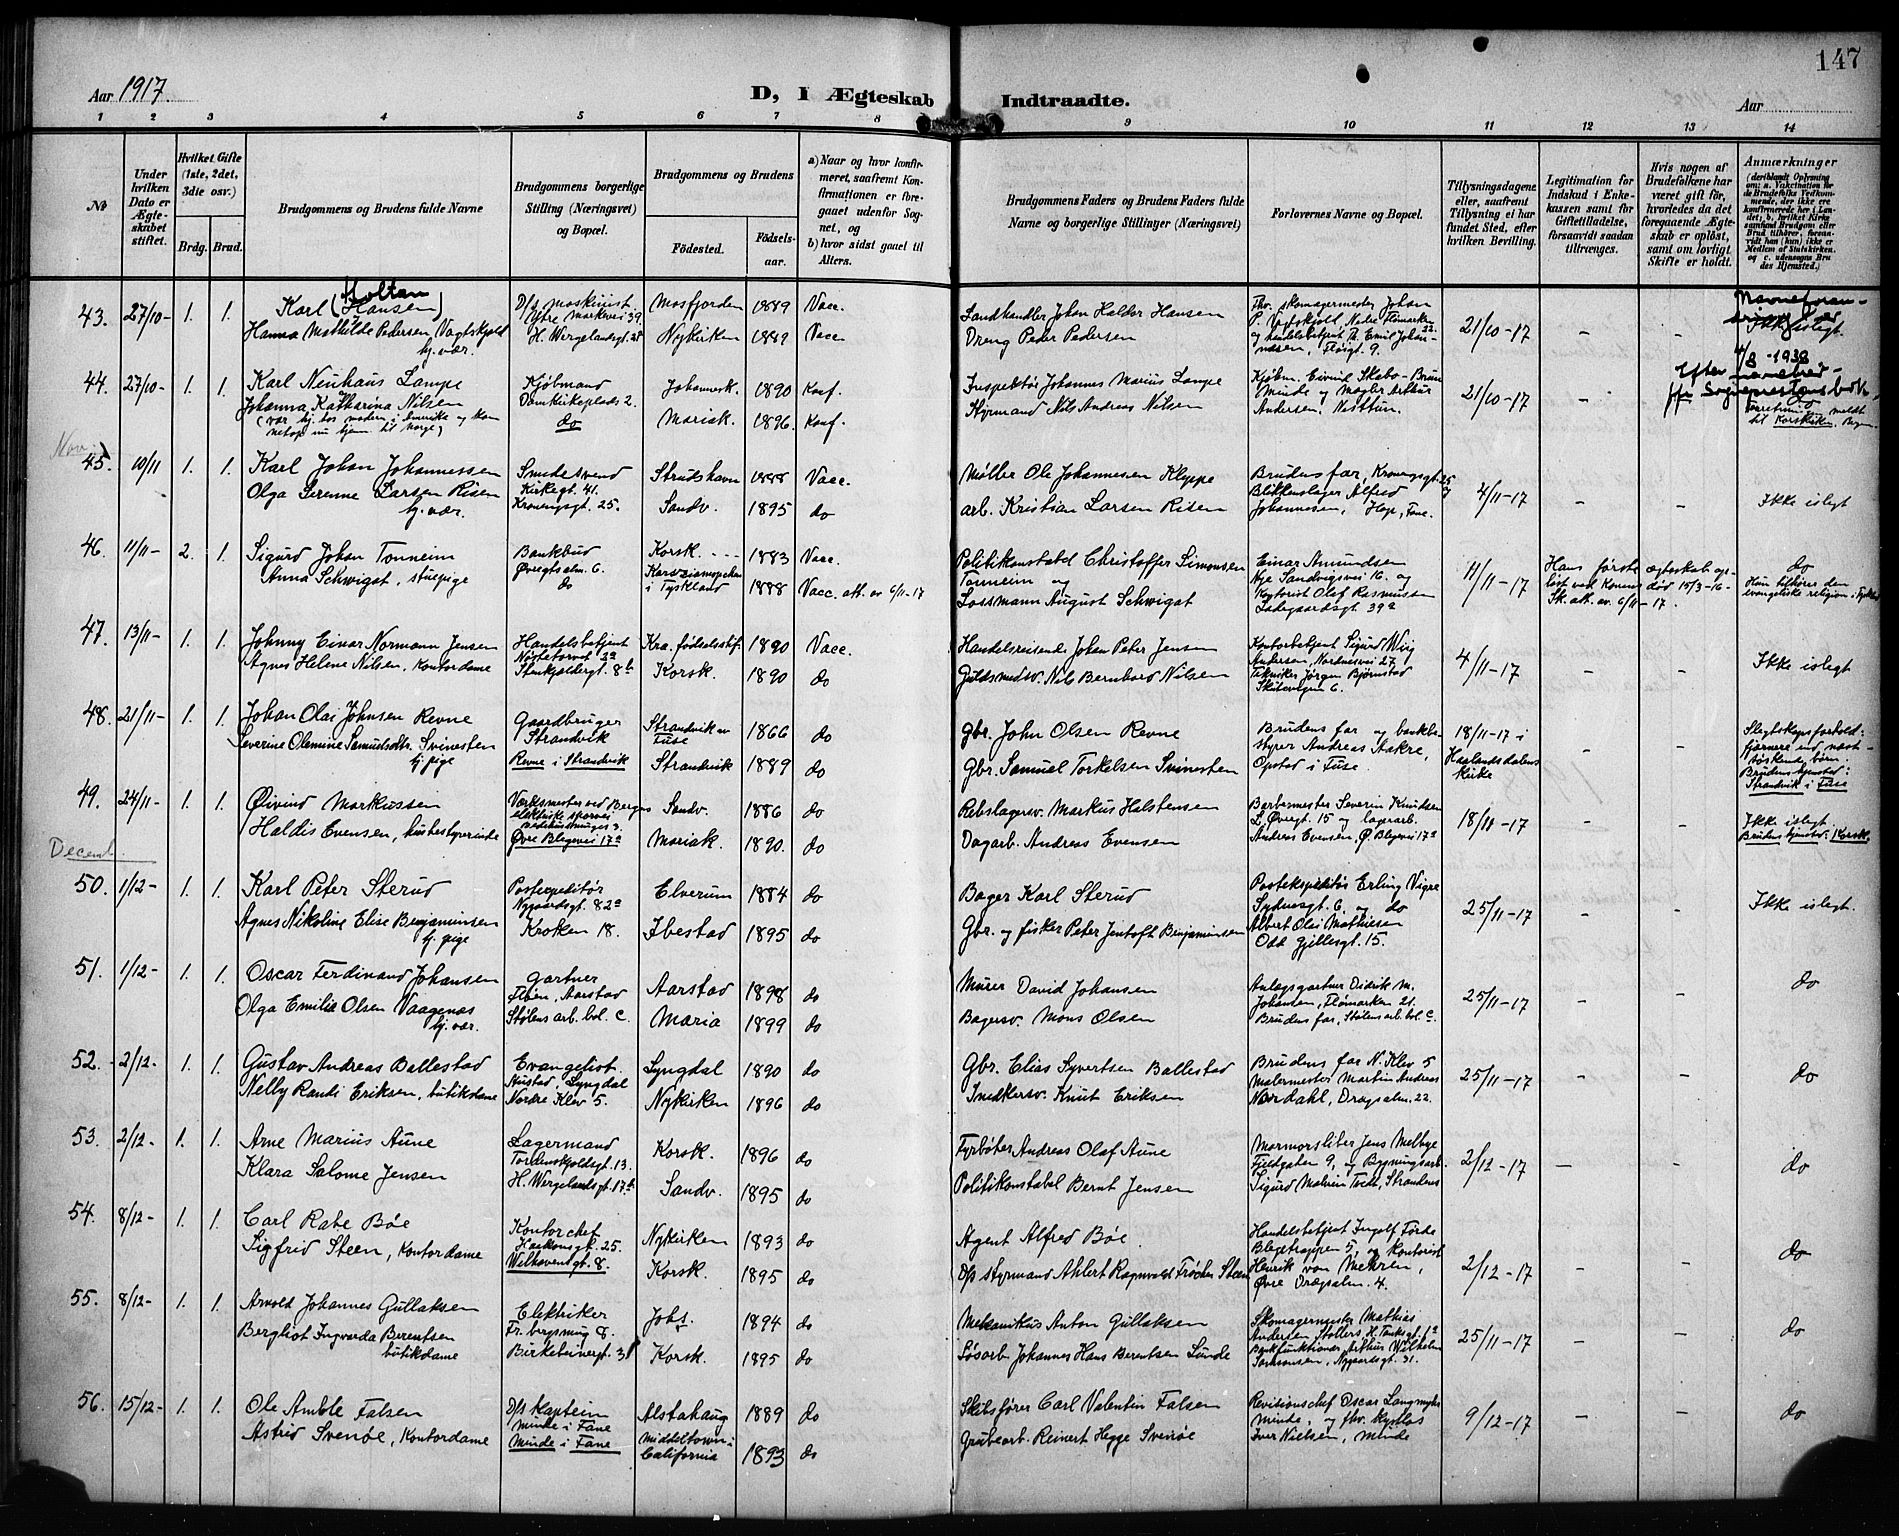 147
Aar 1917.
D, i Ægteskab Indtraadte.
Aar
1 2 3 4 5 6 7 8 9 10 11 12 13 14
No
Under hvilken Dato er Ægteskabet stiftet.
Hvilket Gifte (1ste, 2det, 3die osv.)
Brdg. Brud.
Brudgommens og Brudens fulde Navne
Brudgommens borgerlige Stilling (Næringsvei) og Bopæl.
Brudgommens og Brudens
Fødested.
Fødselsaar.
a) Naar og hvor konfirmeret, saafremt Konfirmationen er foregaaet udenfor Sognet, og
b) hvor sidst gaaet til Alters.
Brudgommens Faders og Brudens Faders fulde Navne og borgerlige Stillinger (Næringsvei)
Forlovernes Navne og Bopæl.
Tillysningsdagene eller, saafremt Tillysning ei har fundet Sted, efter hvilken Bevilling.
Legitimation for Indskud i Enkekassen samt for Giftetilladelse, forsaavidt saadan tiltrænges.
Hvis nogen af Brudefolkene har været gift før, hvorledes da det foregaaende Ægteskab er opløst, samt om lovligt Skifte er holdt.
Anmærkninger (deriblandt Oplysning om: a. Vakcination for de Brudefolks Vedkommende, der ikke ere konfirmerede her i Landet; b. hvilket Kirkesamfund Brudgom eller Brud tilhører, forsaavidt han (hun) ikke er Medlem af Statskirken, og c. udensogns Brudes Hjemsted.)
43. 27/10- 1. 1. Karl (Hansen) Holtan
Hanna Mathilde Pedersen Vagtskjold
hj. vær.
D/s maskinist
Ytre Markevei 39
H. Wergelandsgt. 25
Mosfjorden 1889 Vacc.
Nykirken 1889 Vacc.
Landhandler Johan Halder Hansen
Dreng Peder Pedersen
Fhv. skomagermester Johan
P. Vagtskjold, Nedre Flømarken 22
og handelsbetjent Th. Emil Johannesen, Fløigt. 9.
21/10-17 - -
Navneforandring
Ikke islegt.
4/8 -1938
44. 27/10- 1. 1. Karl Neuhaus Lampe
Johanna Katharina Nilsen
(vær hj. hos moderen i Amerika og kom
netop nu hjem til Norge)
Kjøbmand
Domkirkeplads 2.
do
Johannesk. 1890 Konf.
Mariak. 1896. Konf.
Inspektør Johannes Marius Lampe
Styrmand Nils Andreas Nilsen
Kjøbm. Eivind Skabo-Brun
Minde og Magler Arthur
Andersen, Nesttun.
21/10-17 - -
do
til Korskirken
Nov.
45. 10/11 1. 1. Karl Johan Johannessen
Olga Serenne Larsen Risen
hj. vær.
Smedesvend
Kirkegt. 41.
Kroningsgt. 25.
Strudshavn 1888 Vacc.
Sandv. 1895 do
Møller Ole Johannesen Kleppe
arb. Kristian Larsen Risen
Brudens far, Kroningsgt. 25
Blikkenslager Alfred
Johannesen, Hop, Fane.
4/11-17 - -
Ikke islegt
46. 11/11- 2. 1. Sigurd Johan Tonneim
Anna Schwigat, stuepige
Bankbud
Øvregtsalm. 6.
do
Korsk. 1883 Vacc.
i Tyskland 1888 Vacc. att. av 6/11-17
Politikonstabel Christoffer Simonsen
Tonneim og
Lossmann August Schwigat
Einar Amundsen
Nye Sandvigsvei 16. og
Olaf Rasmussen
Ladegaardsgt. 39a
11/11-17
Hans første ægteskab opløst ved konens død 15/3-16-
Sk. att. av. 6/11-17.
do
Hun tilhører den
evangeliske religion i Tyskland
47. 13/11- 1. 1. Johnny Einar Normann Jensen
Agnes Helene Nilsen, kontordame
Handelsbetjent
Nøstetorvet 3a
Stenkjellergt. 8b
Kra. fødselsstif. 1890 Vacc.
Korsk. 1890 do
Handelsreisende Johan Peter Jensen
Guldsmedsv. Nils Bernhard Nilsen
Kontorbetjent Sigurd Wiig
Andersen, Nordnesvei 27
Tekniker Jørgen Bjørnstad
6.
4/11-17 - -
Ikke islegt
48. 21/11- 1. 1. Johan Olai Johnsen Revne
Severine Olemine Samuelsdtr. Svinesten
hj. pige
Gaardbruger
Strandvik
Revne i Strandvik
Strandvik av
Fuse 1866 do
Strandvik 1889 do
Gbr. John Olsen Revne
Gbr. Samuel Torkelsen Svinesten
Brudens far og bankbestyrer Andreas Aakre,
Opstad i Fuse.
18/11-17 i
Haalandsdalens
kirke
- -
Slegtskapsforhold
fjærnere end næstsøskendebørn.
Brudens hjemsted:
Strandvik i Fuse
49. 24/11- 1. 1. Øivind Markussen
Haldis Evensen, husbestyrerinde
Verksmester ved Bergens
elektriske sporvei
3.
Øvre Blegevei 17a
Sandv. 1886 do
Mariak. 1890. do
Rebslagersv. Markus Halstensen
Dagarb. Andreas Evensen
Severin Knudsen
L. Øvregt. 15 og lagerarb.
Andreas Evensen, Ø. Blegevei 17a
18/11-17 - -
Ikke islegt.
Brudens hjemsted: Korsk.
Decemb.
50. 1/12- 1. 1. Karl Peter Sterud
Agnes Nikoline Elise Benjaminsen
hj. pige
Postexpeditør
Nygaardsgt. 82a
Kroken 18.
Elverum 1884 do
Ibestad 1895 do
Bager Karl Sterud
Gbr. og fisker Peter Jentoft Benjaminsen
Postekspeditør Erling Vigre
Sydnesgt. 6. og do
Albert Olai Mathiesen
Odd Gjellesgt. 15.
25/11-17 - -
Ikke islegt.
51. 1/12- 1. 1. Oscar Ferdinand Johansen
Olga Emilia Olsen Vaagenas
hj. vær.
Gartner
Aarstad
Stølens arb. bol. C.
Aarstad 1898 do
Maria 1899 do
Murer David Johansen
Bagersv. Mons Olsen
Anlægsgartner Didrik M.
Johansen, Flømarken 21.
Brudens far, Stølens arb. bol. C.
25/11-17 - -
do
52. 2/12- 1. 1. Gustav Andreas Ballestad
Nelly Randi Eriksen, butikdame
Evangelist.
Austad, Lyngdal
Nordre Klev 5.
Lyngdal 1890 do
Nykirken 1896 do
Gbr. Elias Syvertsen Ballestad
Snedkersv. Knut Eriksen
Brudens far N. Klev 5
Malermester Martin Andreas
Nordahl, Dragsalm. 22.
25/11-17 - -
do
53. 2/12- 1. 1. Arne Marius Aune
Klara Salome Jensen
Lagermand
Tordenskjoldsgt. 13.
H. Wergelandsgt. 17b
Korsk. 1896 do
Sandv. 1895 do
Fyrbøter Andreas Olaf Aune
Politikonstabel Bernt Jensen
Marmorsliber Jens Melbye
Fjeldgaten 9, og Bygningsarb.
Sigurd
2/12-17 - -
do
54. 8/12- 1. 1. Carl Rabe Bøe
Sigfrid Steen, kontordame
Kontorchef
Haakonsgt. 25.
8.
Nykirken 1893 do
Korsk. 1895 do
Agent Alfred Bøe.
D/s styrmand Ahlert Ragnvald Frøchen Steen
Handelsbetjent Ingolf Førde
Blegetrappen 5, og kontorist
Henrik von Mehren,
Øvre Dragsalm. 4.
2/12-17 - -
do
55. 8/12- 1. 1. Arvold Johannes Gullaksen
Bergliot Ingvarda Berentsen
butikdame
Elektriker
Fr. bergsmug 8.
Birkebeinergt. 31
Johs. 1894 do
Korsk. 1895 do
Mekanikus Anton Gullaksen
Løsarb. Johannes Hans Berentsen Lunde
Skomagermester Mathias
Andersen
Bankfunktionær Arthur Wilhelm
Samsonsen, Nygaardsgt. 31.
25/11-17 - -
do
56. 15/12- 1. 1. Ole Amble Falsen
Astrid Svenøe, kontordame
D/s kaptein
Minde i Fane
Minde i Fane
Alstahaug 1889 do
Middeltown i
California 1893 do
Skibsfører Carl Valentin Falsen
Grubearb. Reinert Hegge Svenøe
Revitionschef Oscar Langmyhr
Minde, og fhv. kystlos
Iver Nielsen, Minde
9/12-17 - -
do